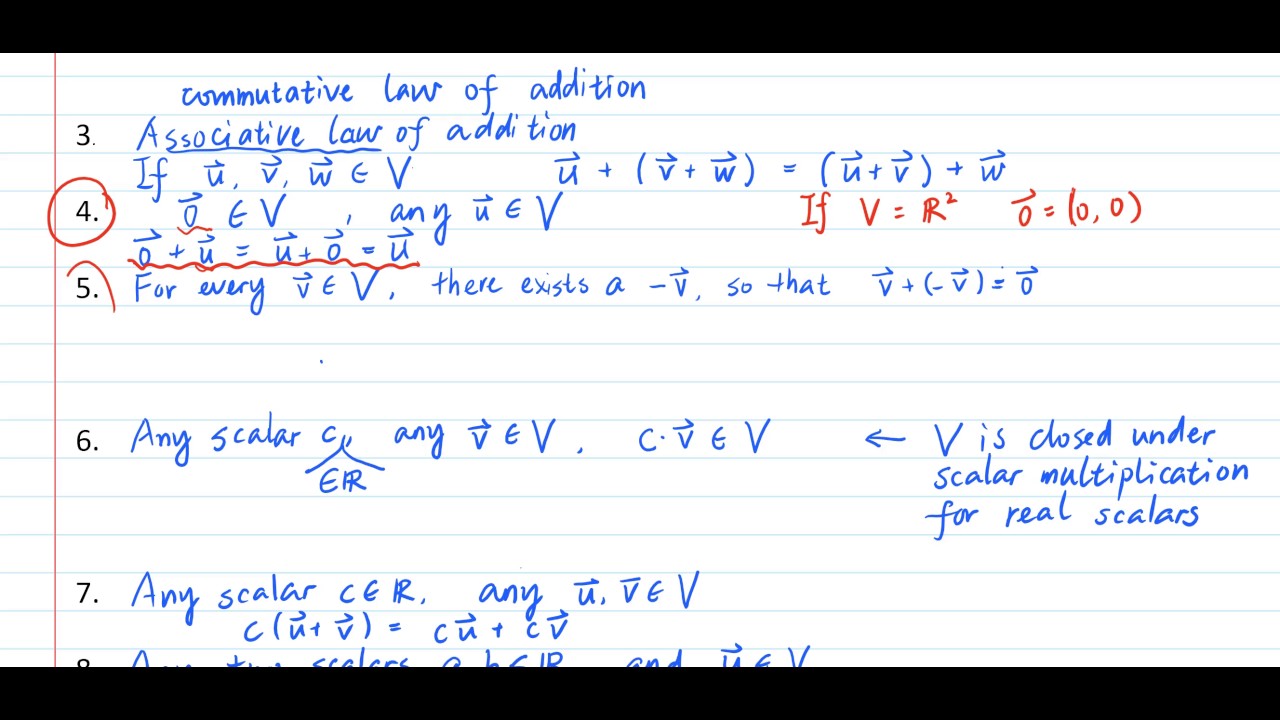 commutative law of addition
3. Associative law of addition
If u⃗, v⃗, w⃗ ∈ V u⃗ + (v⃗ + w⃗) = (u⃗ + v⃗) + w⃗
4. 0⃗ ∈ V , any u⃗ ∈ V If V = ℝ² 0⃗ = (0, 0)
0⃗ + u⃗ = u⃗ + 0⃗ = u⃗
5. For every v⃗ ∈ V, there exists a -v⃗, so that v⃗ + (-v⃗) = 0⃗
6. Any scalar c, any v⃗ ∈ V, c·v⃗ ∈ V ← V is closed under
∈ℝ scalar multiplication
for real scalars
7. Any scalar c∈ℝ, any u⃗, v̅ ∈ V
c(u⃗ + v⃗) = cu⃗ + cv⃗
8. Any two scalars a, b ∈ ℝ and u⃗ ∈ V